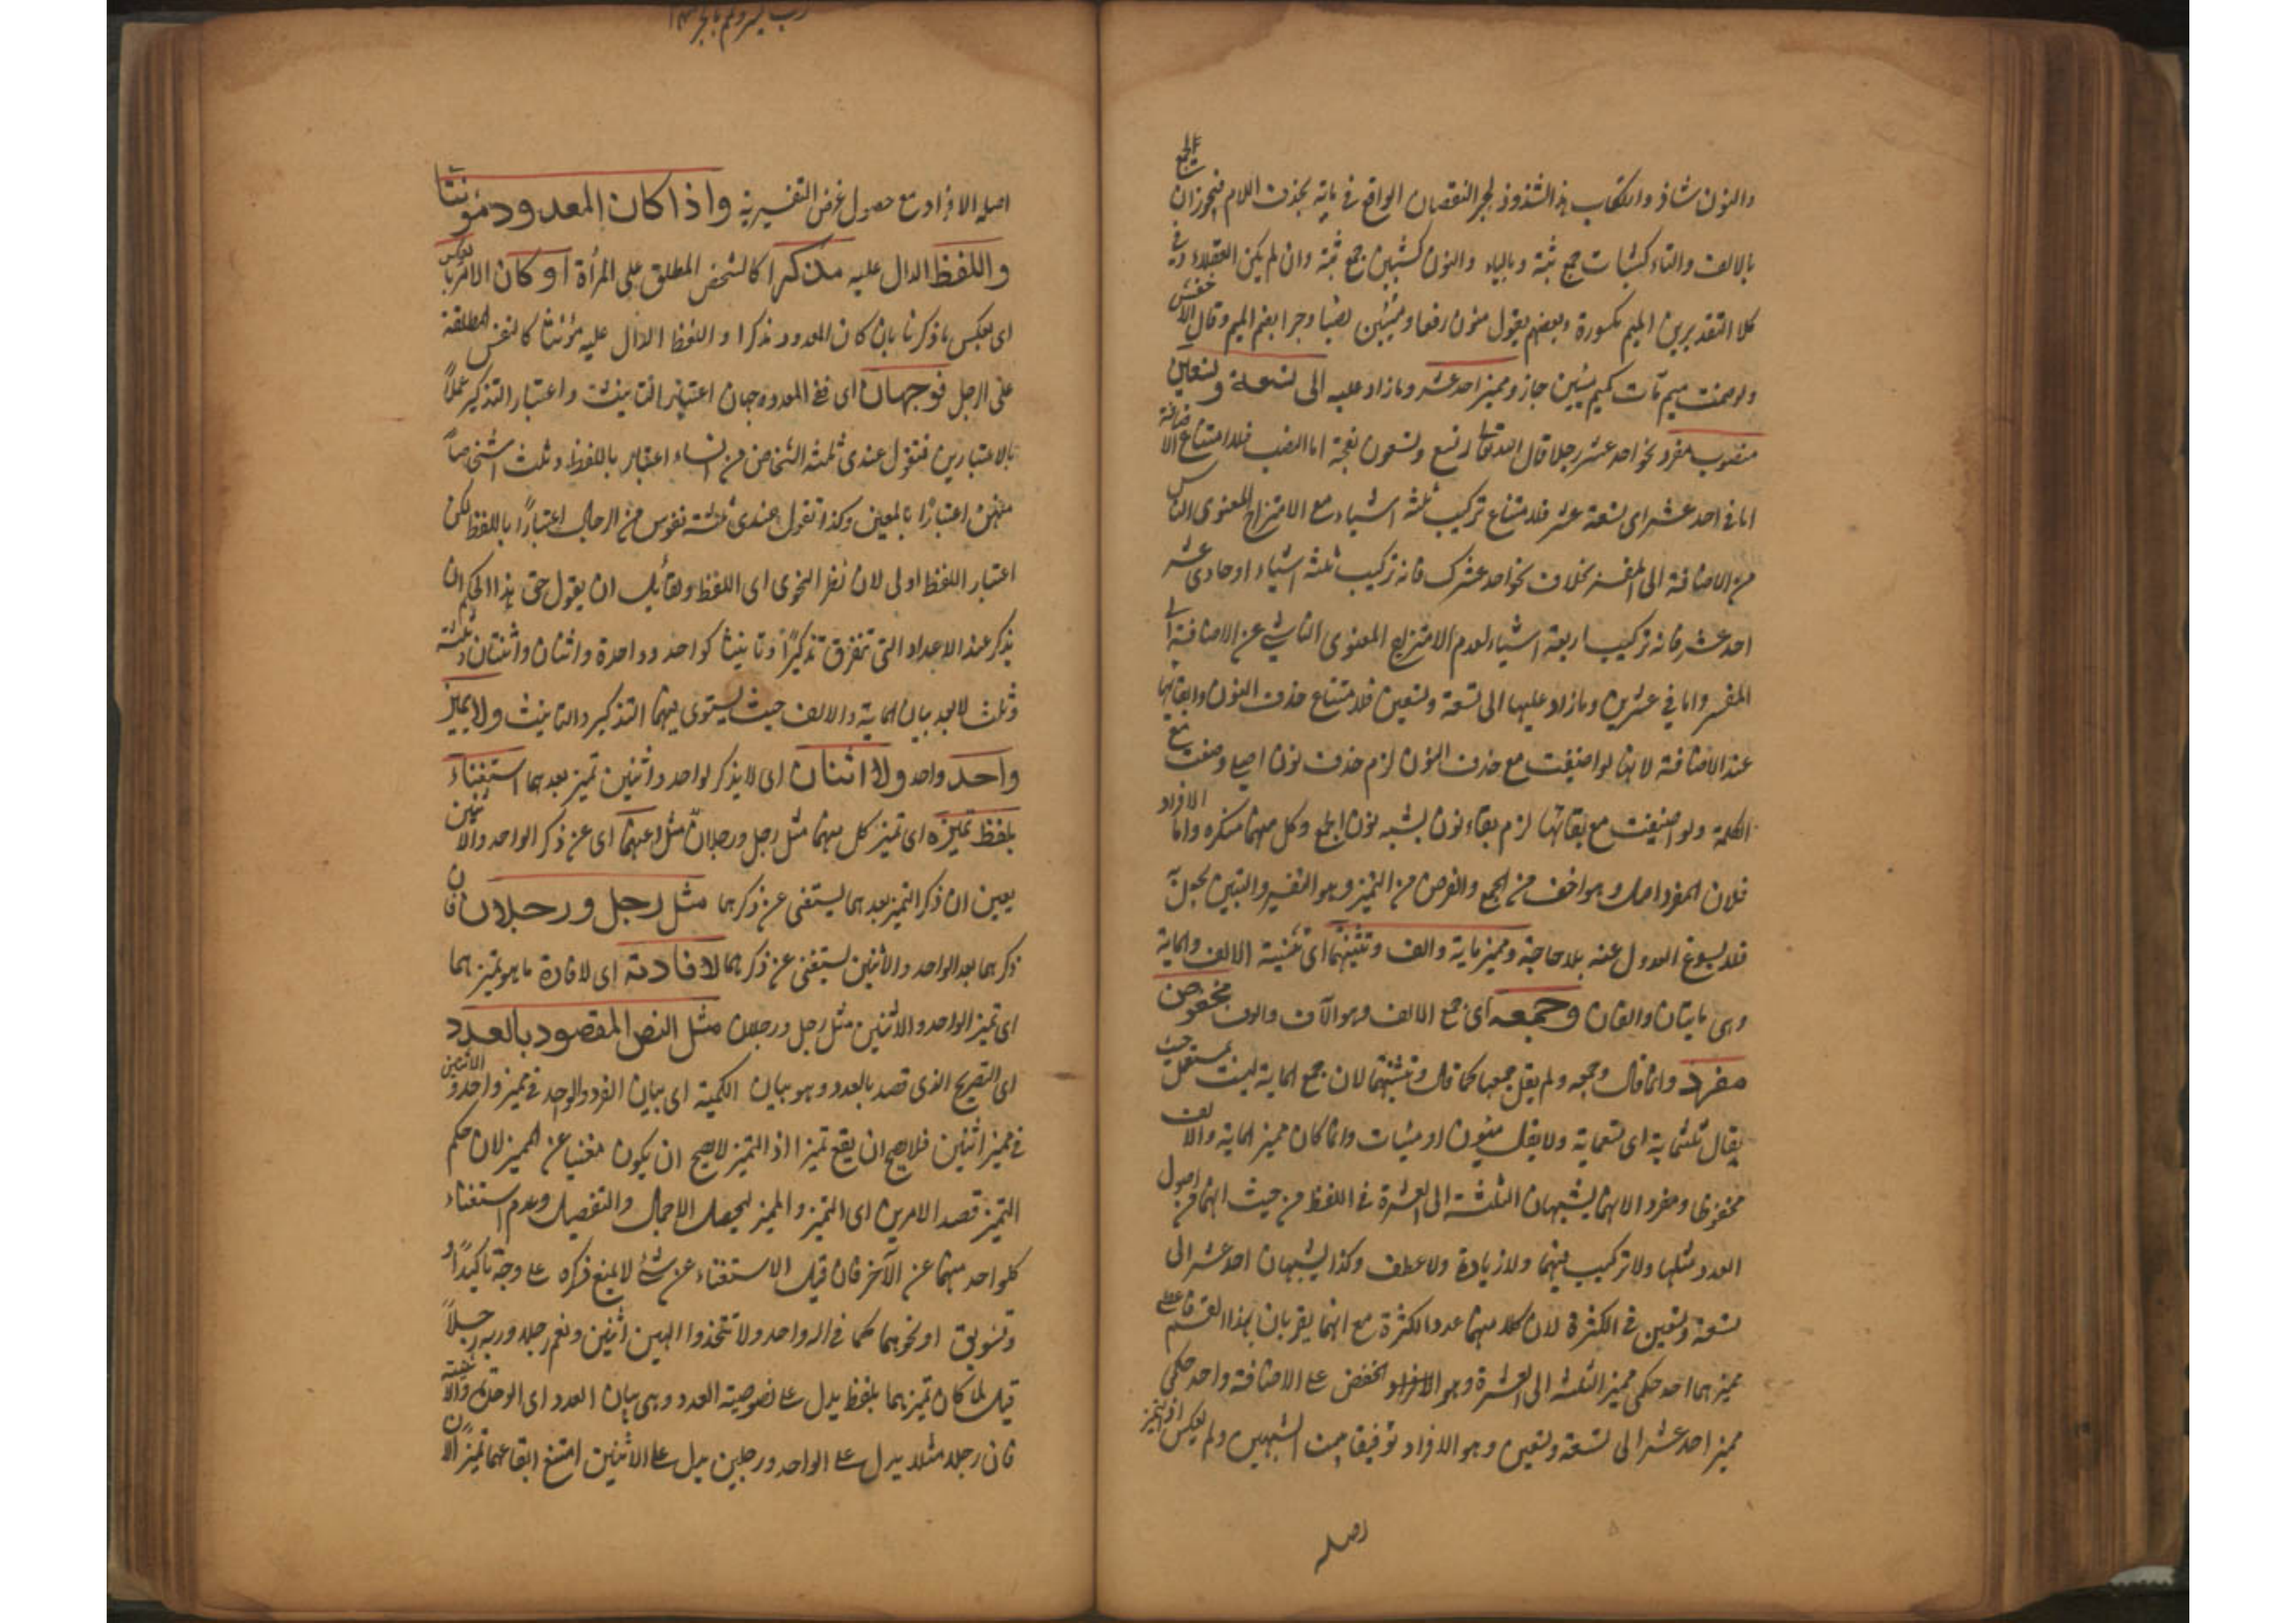 والنون شاذ وارتكاب هذا الشذوذ لجبر النقصان الواقع في ماية بحذف اللام فيجوز ان الجمع
بالالف والتاء كثبات جمع ثبة وبالياء والنون كثبين جمع ثبة وان لم يكن العقلاء وفي
كلا التقديرين الميم مكسورة وبعضهم يقول مئون رفعا ومئين نصبا وجرا بضم الميم وقال الاخفش
ولو ضمت ميم مآت كميم مئين جاز ومميز احد عشر وما زاد عليه الى تسعة وتسعين
منصوب مفرد نحو احد عشر رجلا قال الله تعالى تسع وتسعون نعجة اما النصب فلامتناع الاضافة
اما في احد عشر اى تسعة عشر فلامتناع تركيب ثلثة اشياء مع الامتزاج المعنوى الناش
من الاضافة الى المفسر بخلاف نحو احد عشرك فانه تركيب ثلثة اشياء او حادى عشر
احد عشر فانه تركيب اربعة اشياء لعدم الامتزاج المعنوى الناشي عن الاضافة الى
المفسر واما في عشرين وما زاد عليها الى تسعة وتسعين فلامتناع حذف النون وابقائها
عند الاضافة لانها لو اضيفت مع حذف النون لزم حذف نون اصل وضعت مع
الكلمة ولو اضيفت مع بقائها لزم بقاء نون يشبه نون الجمع وكل منهما منكره واما الافراد
فلان المفرد اصل وهو اخف من الجمع والغرض من التميز وهو التفسير والتبيين يحصل به
فلا يسوغ العدول عنه بلا حاجة ومميز ماية والف وتثنيتهما اى تثنية الالف والماية
وهى مايتان والفان وجمعه اى جمع الالف وهو الآف والوف مخفوض
مفرد وانما قال وجمعه ولم يقل جمعها كما قال وتثنيتهما لان جمع الماية ليست بمستعمل حيث
يقال ثلثماية اى تسعماية ولا يقال مئون او مئيات وانما كان مميز الماية والالف
مخفوظا ومفرد الانهما يشبهان الثلثة الى العشرة في اللفظ من حيث انهما من اصول
العدد مثلها ولا تركيب فيهما ولا زيادة ولا عطف وكذا يشبهان احد عشر الى
تسعة وتسعين في الكثرة لان كلا منهما عدد الكثرة مع انهما يقربان بهذا القسم فاعطى
مميزهما احد حكمى مميز الثلثة الى العشرة وهو الافراد الخفض على الاضافة واحد حكمى
مميز احد عشر الى تسعة وتسعين وهو الافراد توفيقا بين الشبهين ولم يعكس اذ المميز
اصله
اصله الافراد مع حصول غرض التفسير به واذا كان المعدود مؤنثا
واللفظ الدال عليه مذكرا كالشخص المطلق على المرأة او كان الامر بالعكس
اى بعكس ما ذكرنا بان كان المعدود مذكرا واللفظ الدال عليه مؤنثا كالنفس المطلقة
على الرجل فوجهان اى ففي المعدود وجهان اعتبار التانيث واعتبار التذكير عملاً
بالاعتبارين فتقول عندى ثلثة اشخاص من النساء اعتبارا باللفظ وثلث اشخاصاً
منهن اعتبارًا بالمعنى وكذا تقول عندى ثلثة نفوس من الرجال اعتبارًا باللفظ لكن
اعتبار اللفظ اولى لان نظر النحوى اى اللفظ ولقائل ان يقول حق هذا الحكم ان
يذكر عند الاعداد التى تتفرق تذكيرًا وتانيثا كواحد وواحدة واثنان واثنتان وثلثة
وثلث لا بعد بيان الماية والالف حيث يستوى فيهما التذكير والتانيث ولا يميز
واحد واحد ولا اثنان اى لا يذكر لواحد واثنين تميز بعدهما استغناء
بلفظ تميزه اى تميز كل منهما مثل رجل ورجلان مثل عنهما اى عن ذكر الواحد والاثنين
يعني ان ذكر التميز بعدهما يستغنى عن ذكرهما مثل رجل ورجلان فان
ذكرهما بعد الواحد والاثنين يستغنى عن ذكرهما لافادته اى لافادة ما هو تميزهما
اى تميز الواحد والاثنين مثل رجل ورجلان مثل النص المقصود بالعدد
اى التصريح الذى قصد بالعدد وهو بيان الكمية اى بيان الفرد والواحد في مميز واحد والاثنين
في مميز اثنين فلا يصح ان يقع تميزا اذ التميز لا يصح ان يكون مغنيا عن المميز لان حكم
التميز قصد الامرين اى التميز والمميز ليحصل الاجمال والتفصيل وعدم استغناء
كلواحد منهما عن الآخر فان قيل الاستغناء عن شئ لا يمنع ذكره على وجه تاكيدًا و
وتسويق او نحوهما كما في اله واحد ولا تتخذوا الهين اثنين ونعم رجلا وربه رجلاً
قيل لما كان تميزهما بلفظ يدل على نصوصية العدد وهى بيان العدد اى الوحدة والاثنينية
فان رجلا مثلا يدل على الواحد ورجلين يدل على الاثنين امتنع ايقاعهما تميزا لان